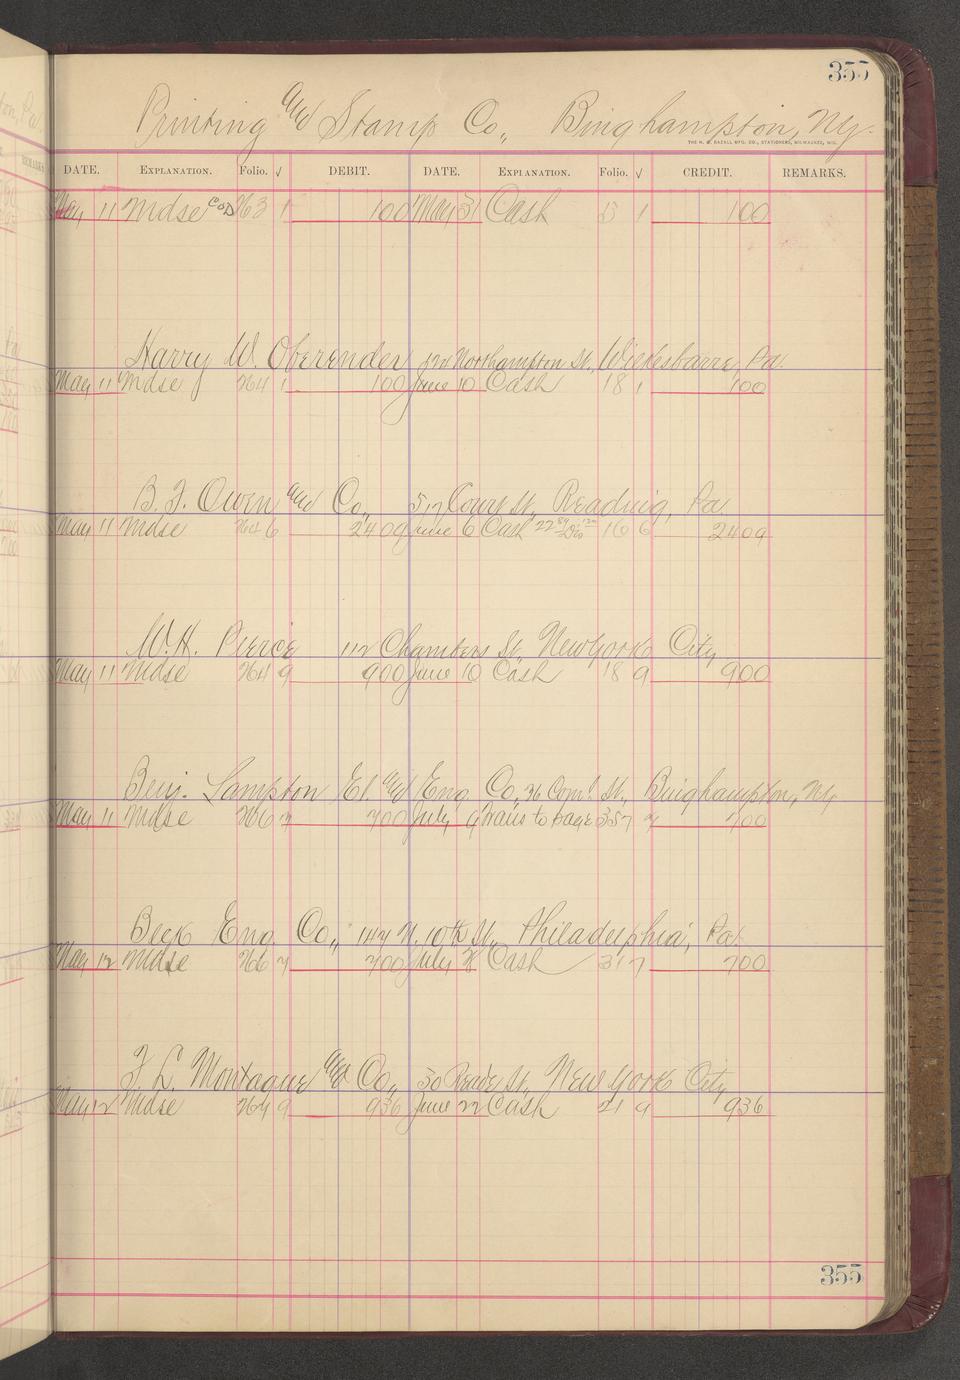 355
Printing and Stamp Co., Binghampton, Ny.
THE H. G. RAZALL MFG. CO., STATIONERS, MILWAUKEE, WIS.
DATE. EXPLANATION. Folio. √ DEBIT. DATE. EXPLANATION. Folio. √ CREDIT. REMARKS.
May 11 Mdse COD 263 1 100 May 31 Cash 13 1 100
Harry W. Oberender Northampton St., Wilkesbarre, Pa.
May 11 Mdse 264 1 100 June 10 Cash 18 1 100
B. F. Owen and Co., 517 Court St., Reading, Pa.
May 11 Mdse 264 6 2409 June 6 Cash 16 6 2409
W.H. Pierce 112 Chambers St., New York City
May 11 Mdse 264 9 900 June 10 Cash 18 9 900
Benj. Lampton El and Eng Co., 36 Coml. St., Binghampton, Ny
May 11 Mdse 266 7 700 July 9 Trans to page 357 7 700
Beck Eng. Co., 147 N. 10th St., Philadelphia, Pa.
May 12 Mdse 266 7 700 July 8 Cash 31 7 700
F. L. Montague and Co., 30 Reade St., New York City
May 12 Mdse 269 9 936 June 22 Cash 21 9 936
355